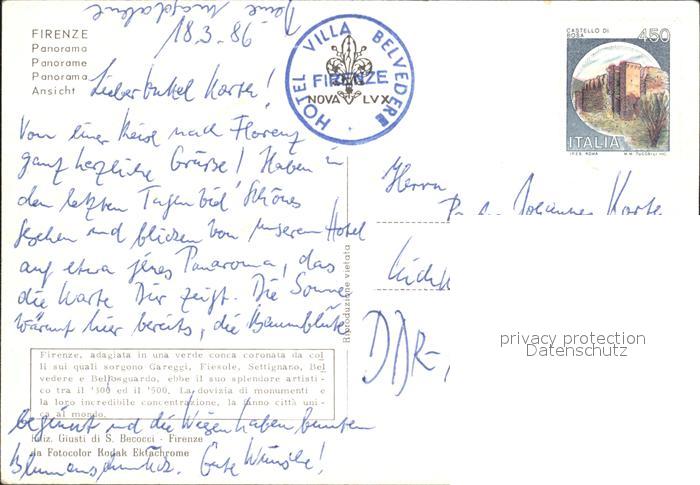 Deine Magdalene
18.3.86
FIRENZE
Panorama
Panorame
Panorama
Ansicht
HOTEL VILLA BELVEDERE
FIRENZE
NOVA LVX
CASTELLO DI
ROSA
450
ITALIA
I.P.Z.S. ROMA M.M. TUCCELLI INC.
Lieber Onkel Karte!
Von einer Reise nach Florenz
ganz herzliche Grüsse! Haben in
den letzten Tagen viel Schönes
gesehen und blicken von unserem Hotel
auf etwa jenes Panaroma, das
die Karte Dir zeigt. Die Sonne
wärmt hier bereits, die Baumblüte
beginnt und die Wiesen haben bunten
Blumenschmuck. Gute Wünsche!
Herrn
Johannes Karte
DDR-
Riproduzione vietata
privacy protection
Datenschutz
Firenze, adagiata in una verde conca coronata da col
li sui quali sorgono Careggi, Fiesole, Settignano, Bel
vedere e Bellosguardo, ebbe il suo splendore artisti-
co tra il '300 ed il '500. La dovizia di monumenti e
la loro incredibile concentrazione, la fanno città uni-
ca al mondo.
Ediz. Giusti di S. Becocci - Firenze
da Fotocolor Kodak Ektachrome